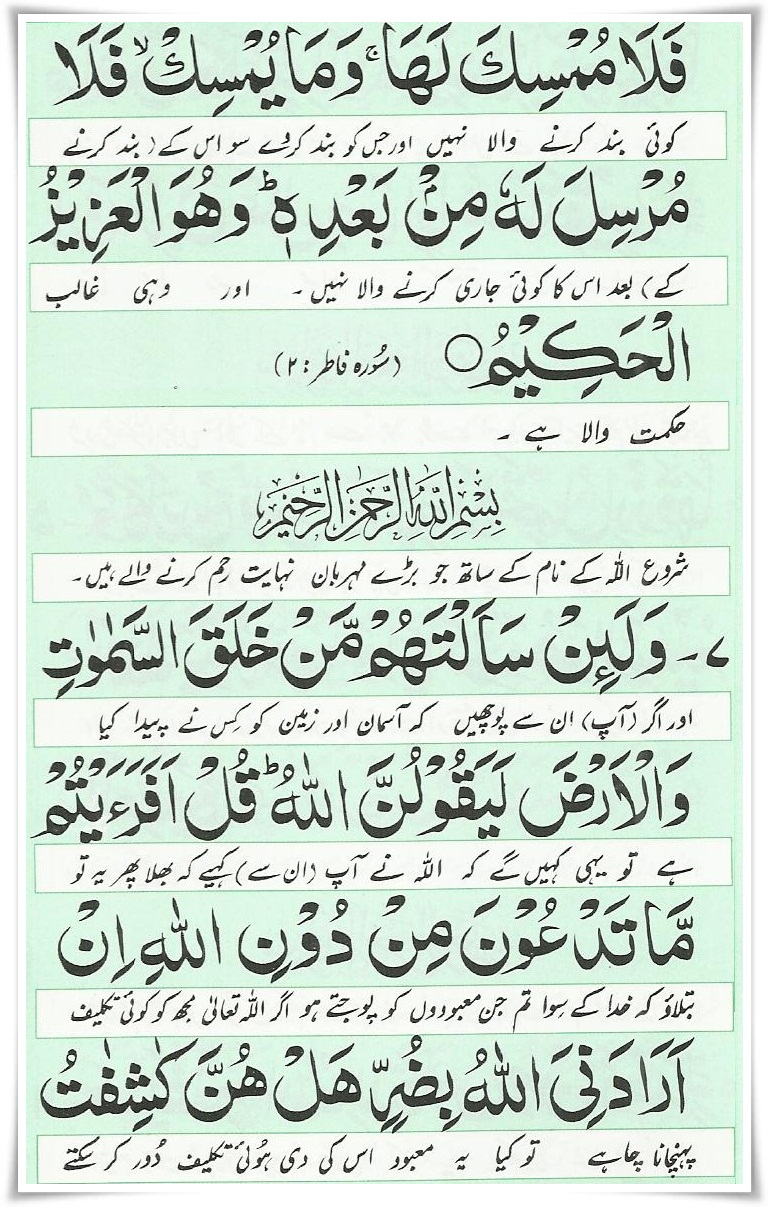 فَلَا مُمْسِكَ لَهَا ۚ وَمَا يُمْسِكْ ۙ فَلَا
کوئی بند کرنے والا نہیں اور جس کو بند کردے سو اس کے (بند کرنے
مُرْسِلَ لَهٗ مِنْۢ بَعْدِهٖ ؕ وَهُوَ الْعَزِیْزُ
کے) بعد اس کا کوئی جاری کرنے والا نہیں۔ اور وہی غالب
الْحَكِیْمُ ○ (سُورہ فاطر: ۲)
حکمت والا ہے ۔
بِسْمِ اللهِ الرَّحْمٰنِ الرَّحِیْمِ
شروع اللہ کے نام کے ساتھ جو بڑے مہربان نہایت رحم کرنے والے ہیں۔
۷۔ وَلَىِٕنْ سَاَلْتَهُمْ مَّنْ خَلَقَ السَّمٰوٰتِ
اور اگر (آپ) ان سے پوچھیں کہ آسمان اور زمین کو کِس نے پیدا کیا
وَالْاَرْضَ لَیَقُوْلُنَّ اللهُ ؕ قُلْ اَفَرَءَیْتُمْ
ہے تو یہی کہیں گے کہ اللہ نے آپ (ان سے) کہیے کہ بھلا پھر یہ تو
مَّا تَدْعُوْنَ مِنْ دُوْنِ اللهِ اِنْ
بتلاؤ کہ خدا کے سِوا تم جن معبودوں کو پوجتے ہو اگر اللہ تعالیٰ مجھ کو کوئی تکلیف
اَرَادَنِیَ اللهُ بِضُرٍّ هَلْ هُنَّ كٰشِفٰتُ
پہنچانا چاہے تو کیا یہ معبود اس کی دی ہُوئی تکلیف دُور کر سکتے